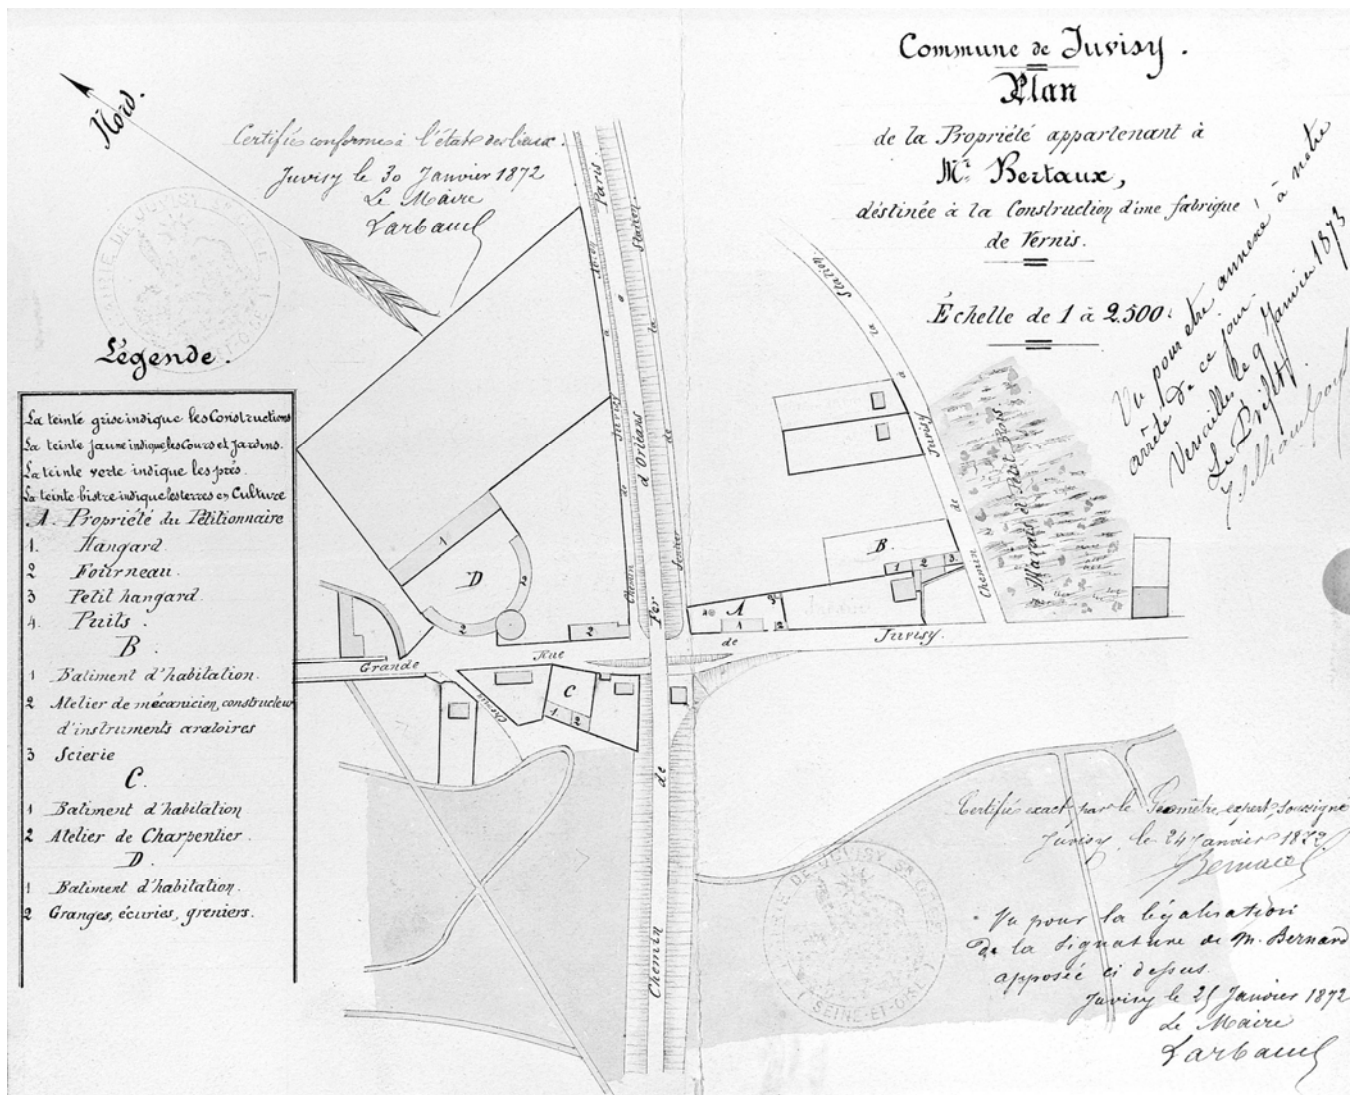 Commune de Juvisy.
Plan
de la Propriété appartenant à
Mr Bertaux,
déstinée à la Construction d'une fabrique
de Vernis.
Échelle de 1 à 2.500.
Nord.
Certifié conforme à l'état des lieux.
Juvisy le 30 Janvier 1872
Le Maire
Larbaud
Vu pour etre annexé à notre
arrêté de ce jour.
Versailles, le 9 Janvier 1873
Le Préfet,
MAIRIE DE JUVISY SR ORGE
Légende.
La teinte grise indique les Constructions
La teinte Jaune indique les Cours et Jardins.
La teinte verte indique les prés.
La teinte bistre indique les terres en Culture
A. Propriété du Pétitionnaire
1. Hangard.
2 Fourneau.
3 Petit hangard.
4. Puits.
B.
1 Batiment d'habitation.
2 Atelier de mécanicien, constructeur
d'instruments aratoires
3 Scierie
C.
1 Batiment d'habitation
2 Atelier de Charpentier.
D.
1 Batiment d'habitation.
2 Granges, écuries, greniers.
Chemin de Juvisy à Paris
Chemin de Fer d'Orléans
Sentier de la Station
Chemin de Juvisy à la Station
Marais
Grande Rue de Juvisy.
Chemin
A
1
2
3
4
Jardin
B.
1 2 3
C
1 2
D
1
2
2
2
Certifié exact par le Géomètre, expert, soussigné
Juvisy, le 24 Janvier 1872.
Bernard
Vu pour la légalisation
de la signature de M. Bernard
apposée ci dessus.
Juvisy le 25 Janvier 1872
Le Maire
Larbaud
MAIRIE DE JUVISY SR ORGE
(SEINE-ET-OISE)